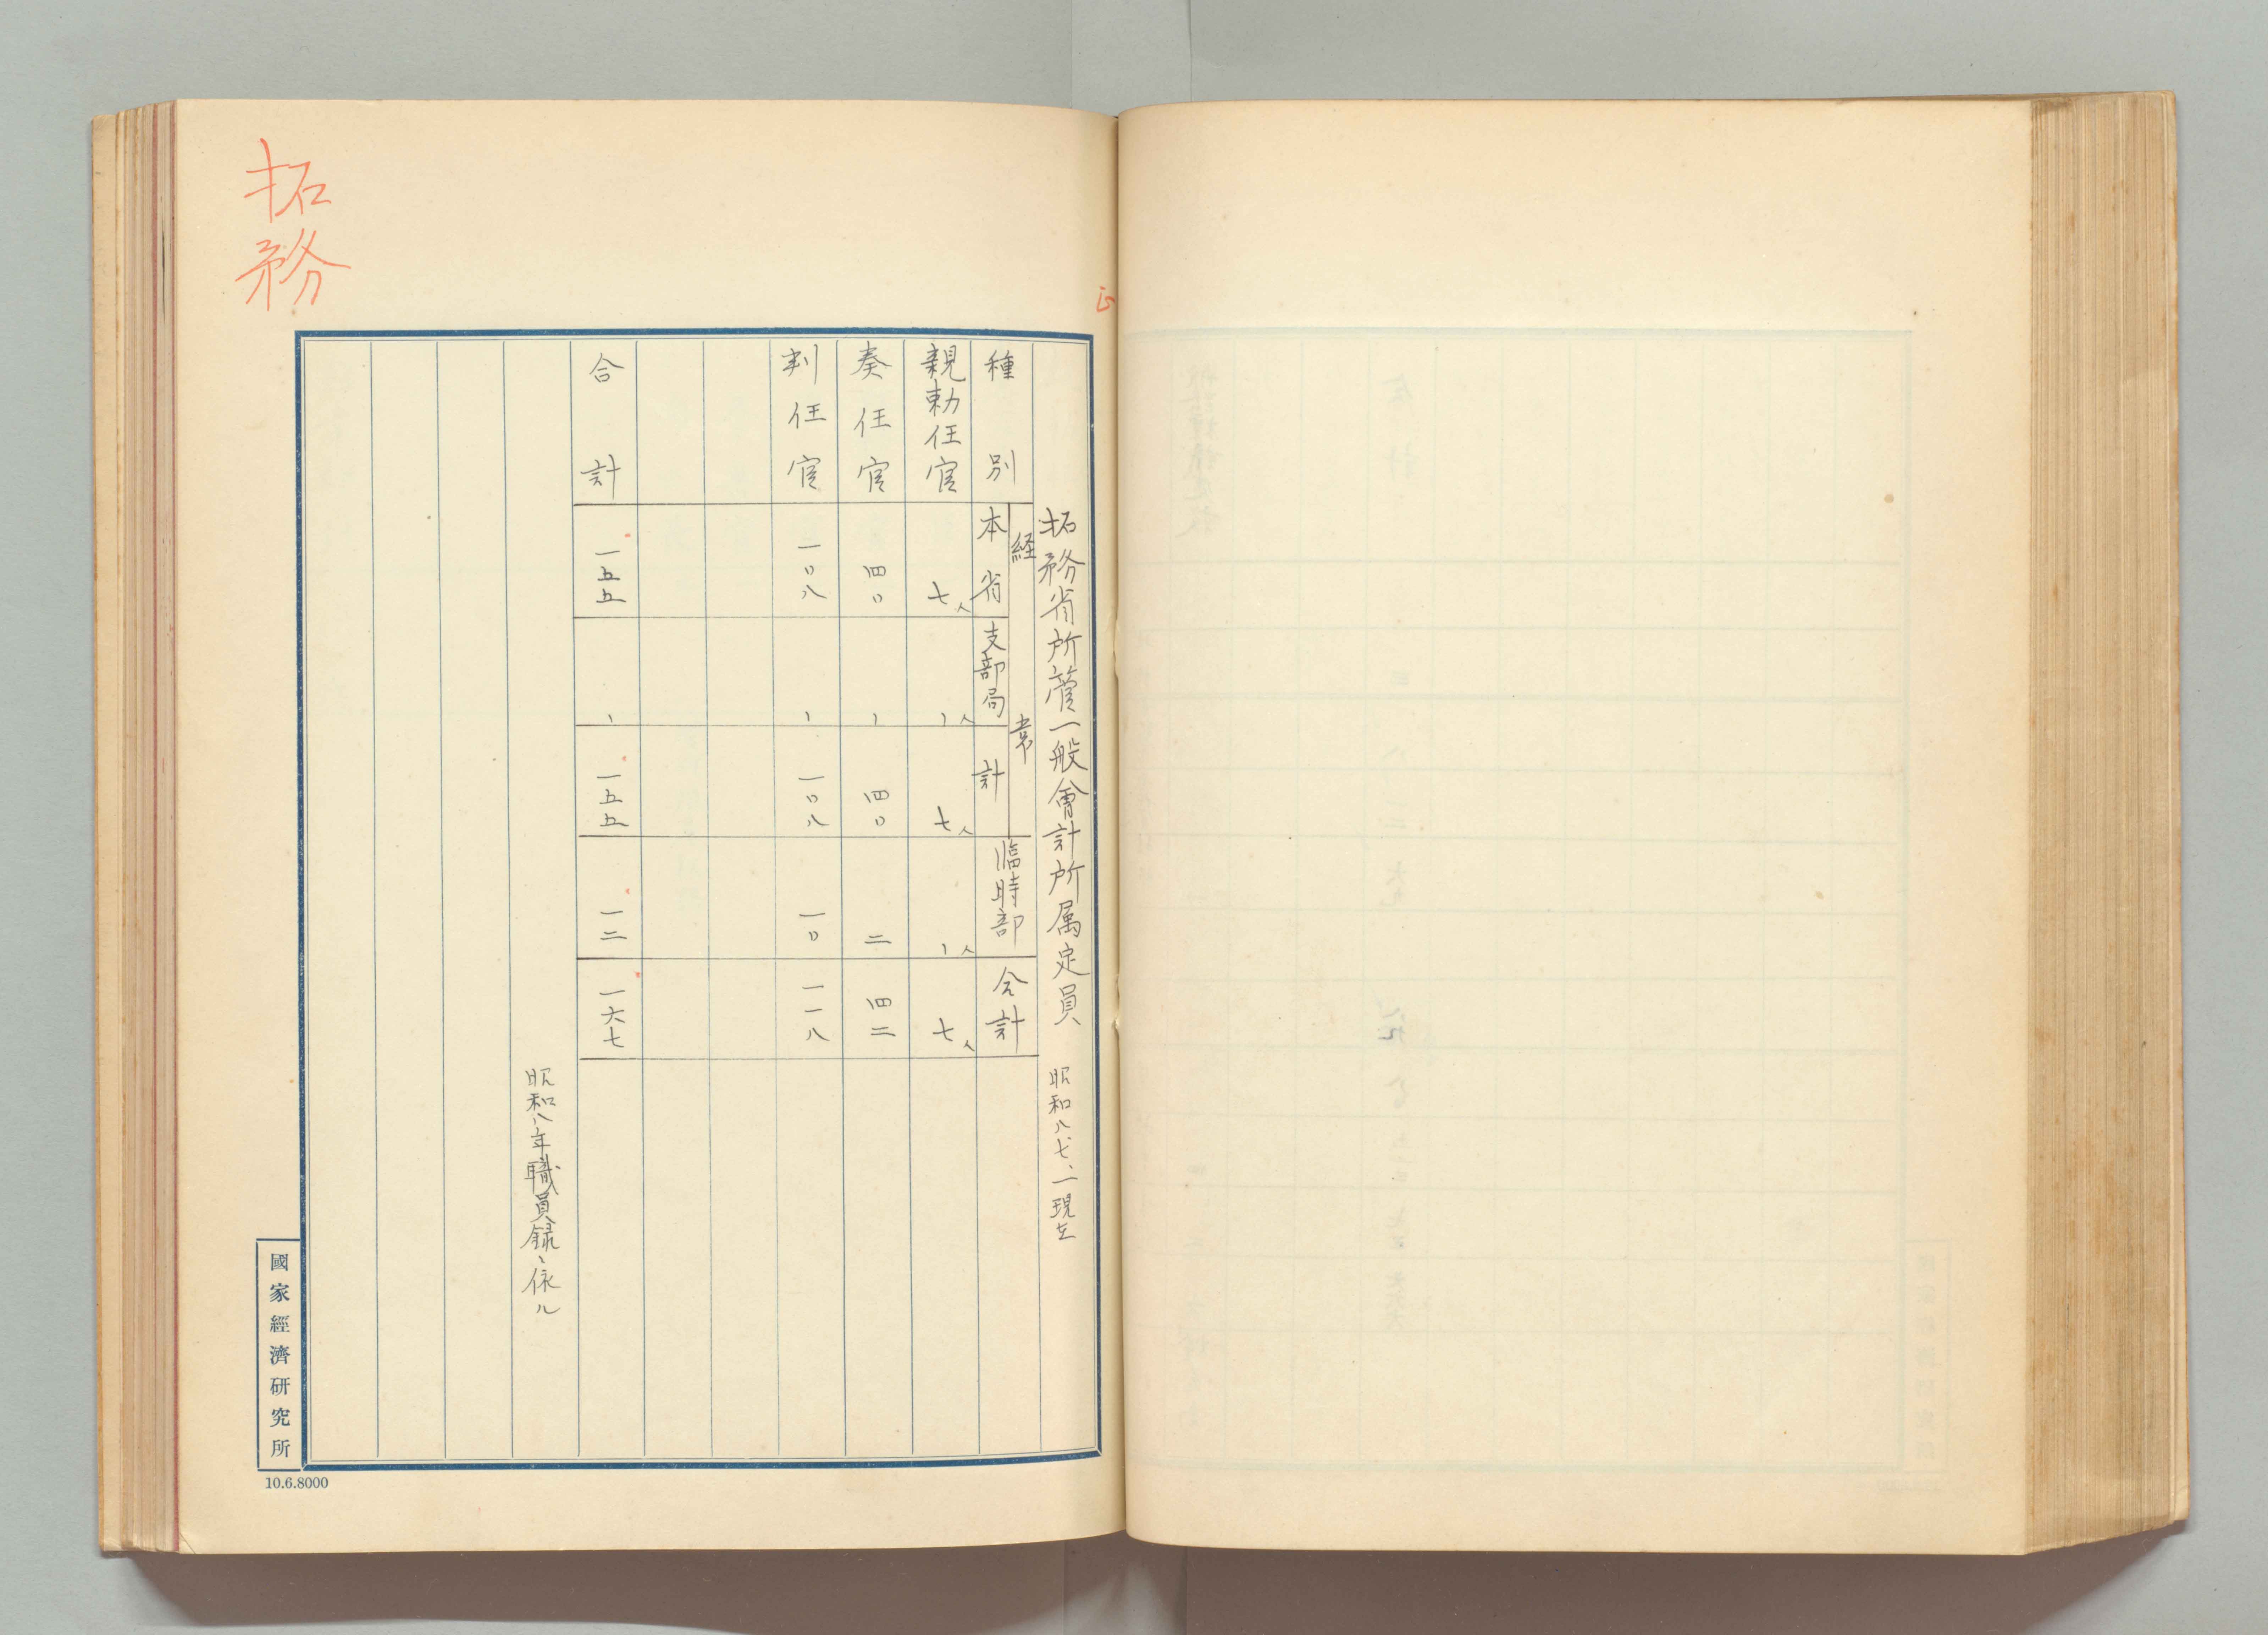 拓務
拓務省所管一般會計所属定員 昭和八、七、一現在
種別 経常 本省 支部局 計 臨時部 合計
親勅任官 七人 ー人 七人 ー人 七人
奏任官 四〇 ー 四〇 二 四二
判任官 一〇八 ー 一〇八 一〇 一一八
合計 一五五 ー 一五五 一二 一六七
昭和八年職員録ニ依ル
國家經濟研究所
10.6.8000